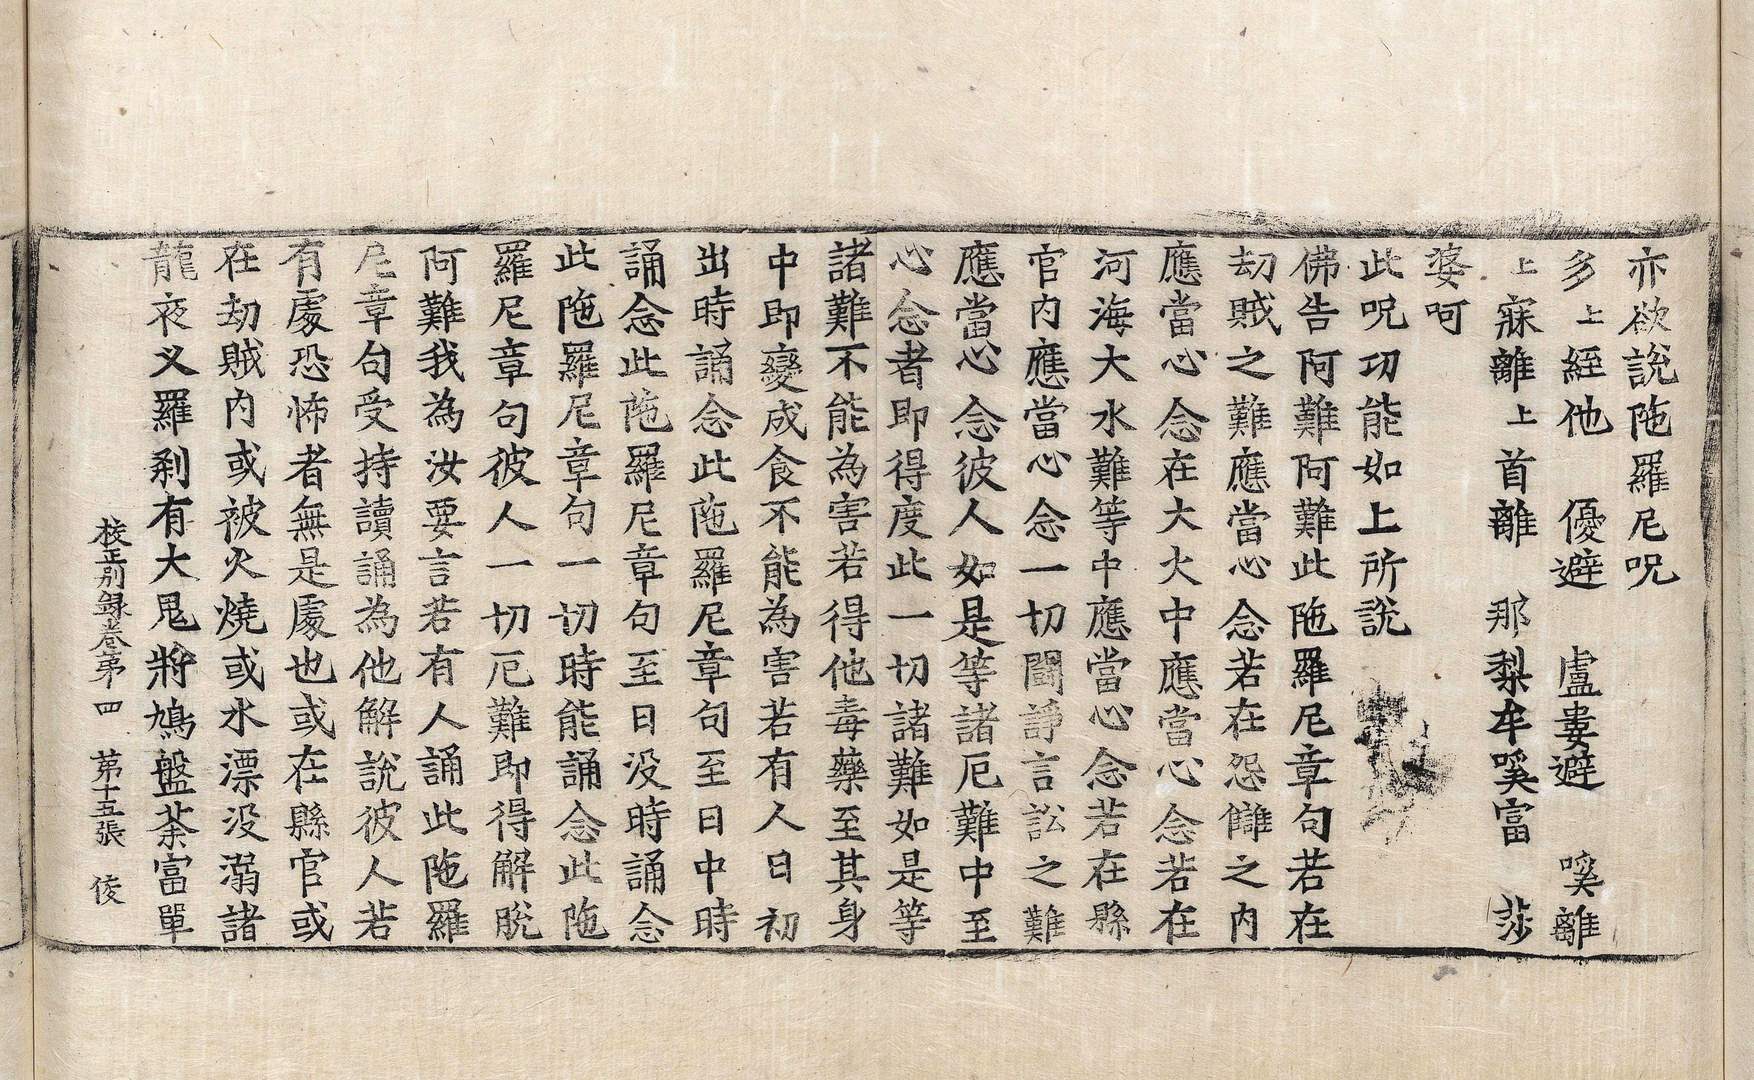 亦欲說陁羅尼呪
多上絰他　優避　盧婁避　嘆離
上寐離上首離　那梨牟嘆富　莎
婆呵
此呪功能如上所說
佛告阿難阿難此陁羅尼章句若在
劫賊之難應當心念若在怨讎之內
應當心念在大火中應當心念若在
河海大水難等中應當心念若在縣
官內應當心念一切鬪諍言訟之難
應當心念彼人如是等諸厄難中至
心念者即得度此一切諸難如是等
諸難不能為害若得他毒藥至其身
中即變成食不能為害若有人日初
出時誦念此陁羅尼章句至日中時
誦念此陁羅尼章句至日没時誦念
此陁羅尼章句一切時能誦念此陁
羅尼章句彼人一切厄難即得解脫
阿難我為汝要言若有人誦此陁羅
尼章句受持讀誦為他解說彼人若
有處恐怖者無是處也或在縣官或
在劫賊內或被火燒或水漂没溺諸
龍夜叉羅剎有大鬼將鳩盤荼富單
校正別錄卷第四　第十五張　俊